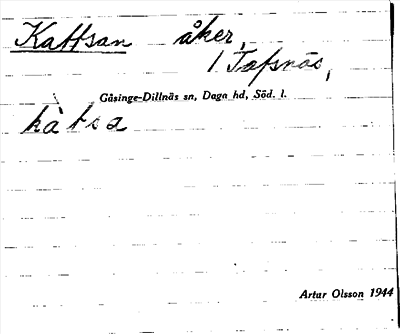 Kattsan åker,
1 Tofsnäs,
Gåsinge-Dillnäs sn, Daga hd, Söd. l.
kàtsa
Artur Olsson 1944